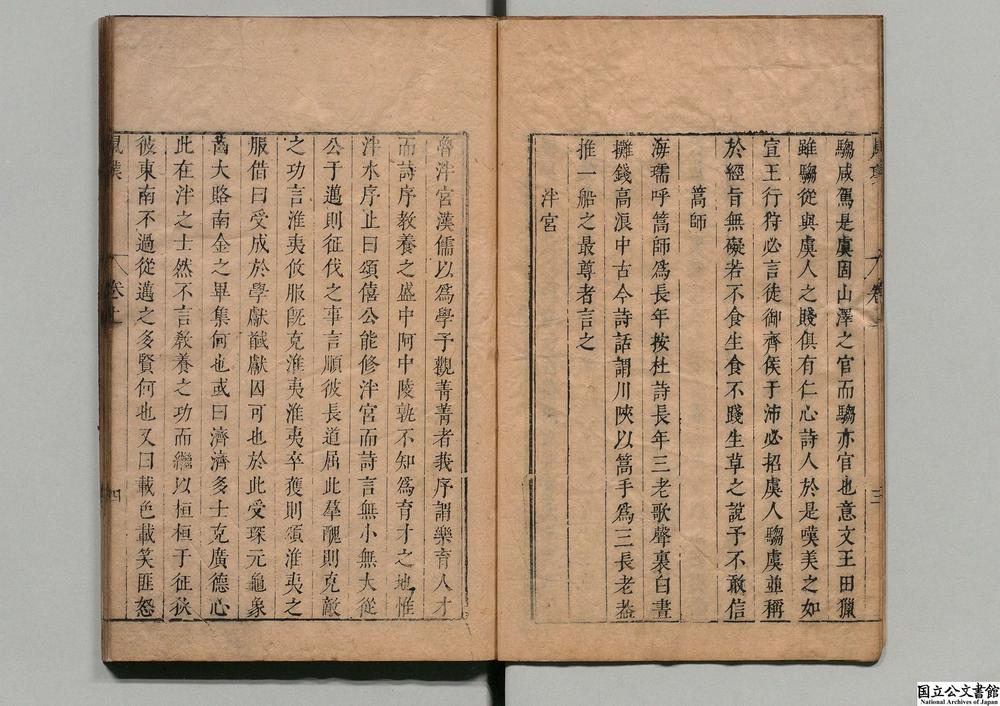 騶咸駕是虞固山澤之官而騶亦官也意文王田獵
雖騶從與虞人之賤俱有仁心詩人於是嘆美之如
宣王行狩必言徒御齊侯于沛必招虞人騶虞並稱
於經旨無礙若不食生食不踐生草之說予不敢信
篙師
海壖呼篙師為長年按杜詩長年三老歌聲裏白晝
攤錢高浪中古今詩話謂川陝以篙手為三長老葢
推一船之最尊者言之
泮宮
魯泮宮漢儒以為學予觀菁菁者莪序謂樂育人才
而詩序教養之盛中阿中陵孰不知為育才之地惟
泮水序止曰頌僖公能修泮宮而詩言無小無大從
公于邁則征伐之事言順彼長道屈此羣醜則克敵
之功言淮夷攸服旣克淮夷淮夷卒獲則頌淮夷之
服借曰受成於學獻馘獻囚可也於此受琛元龜象
齒大賂南金之畢集何也或曰濟濟多士克廣德心
此在泮之士然不言教養之功而繼以桓桓于征狄
彼東南不過從邁之多賢何也又曰載色載笑匪怒
卷上
三
四
国立公文書館
National Archives of Japan